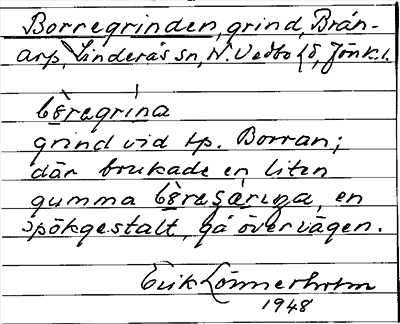 Borregrinden, grind, Brån-
arp, Linderås sn, N. Vedbo hd, Jönk. l.
bèregrina
grind vid tp. Borran;
där brukade en liten
gumma, en
spökgestalt, gå över vägen.
Erik Lönnerholm
1948